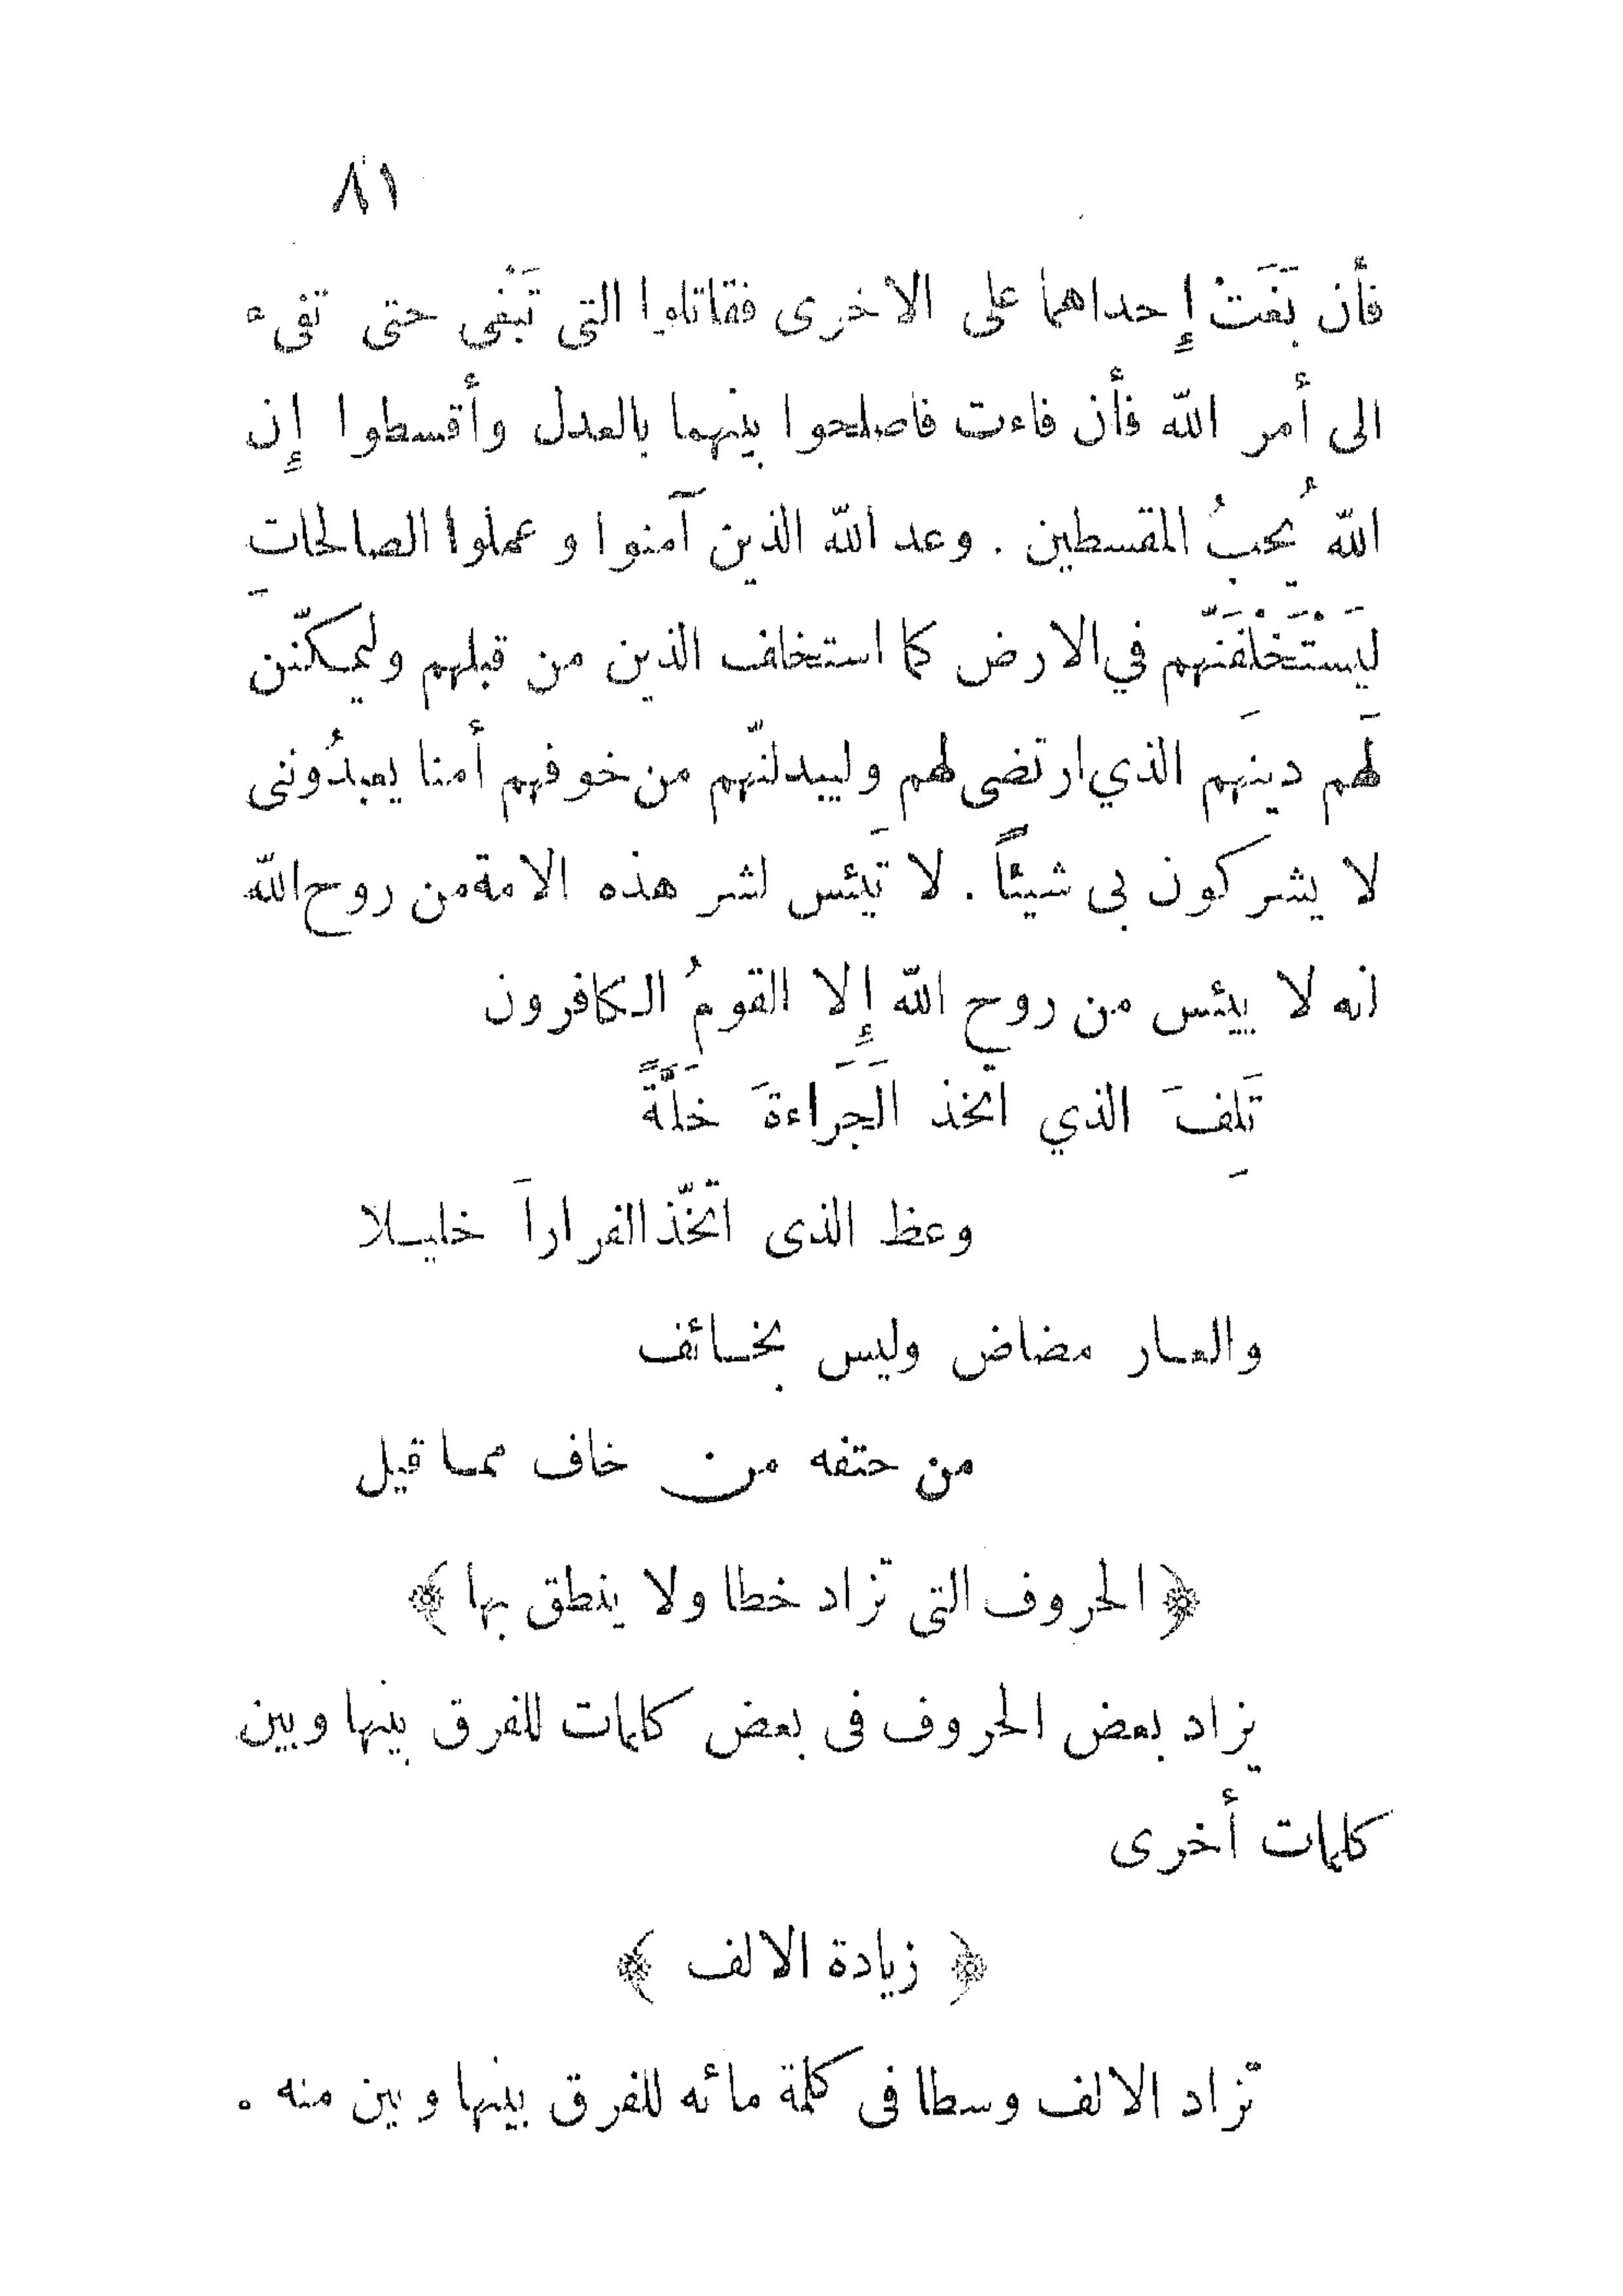 ٨١
فأن بَغَتْ إِحداهما على الاخرى فقاتلوا التى تَبْغى حتى تفىء
الى أمر الله فأن فاءت فاصلحوا بينهما بالعدل وأقسطوا إِن
الله يُحبُ المقسطين . وعد الله الذين آمنوا وعملوا الصالحات
لَيَسْتَخْلَفَنّهم في الارض كما استخلف الذين من قبلهم وليمكّنن
لَهم دينَهم الذي ارتضى لهم وليبدلنّهم من خوفهم أمنا يعبدُوننى
لا يشركون بى شيئاً . لا تَيئس لشر هذه الامة من روح الله
انه لا ييئس من روح الله إِلا القومُ الكافرون
تَلِفَ الذي اتخذ الَجَراءةَ خَلَّةً
وعظ الذى اتخّذ الفراراَ خليلا
والعار مضاض وليس بخائف
من حتفه من خاف مما قيل
﴿ الحروف التى تزاد خطا ولا ينطق بها ﴾
يزاد بعض الحروف فى بعض كلمات للفرق بينها وبين
كلمات أخرى
﴿ زيادة الالف ﴾
تزاد الالف وسطا فى كلمة مائه للفرق بينها وبين منه .